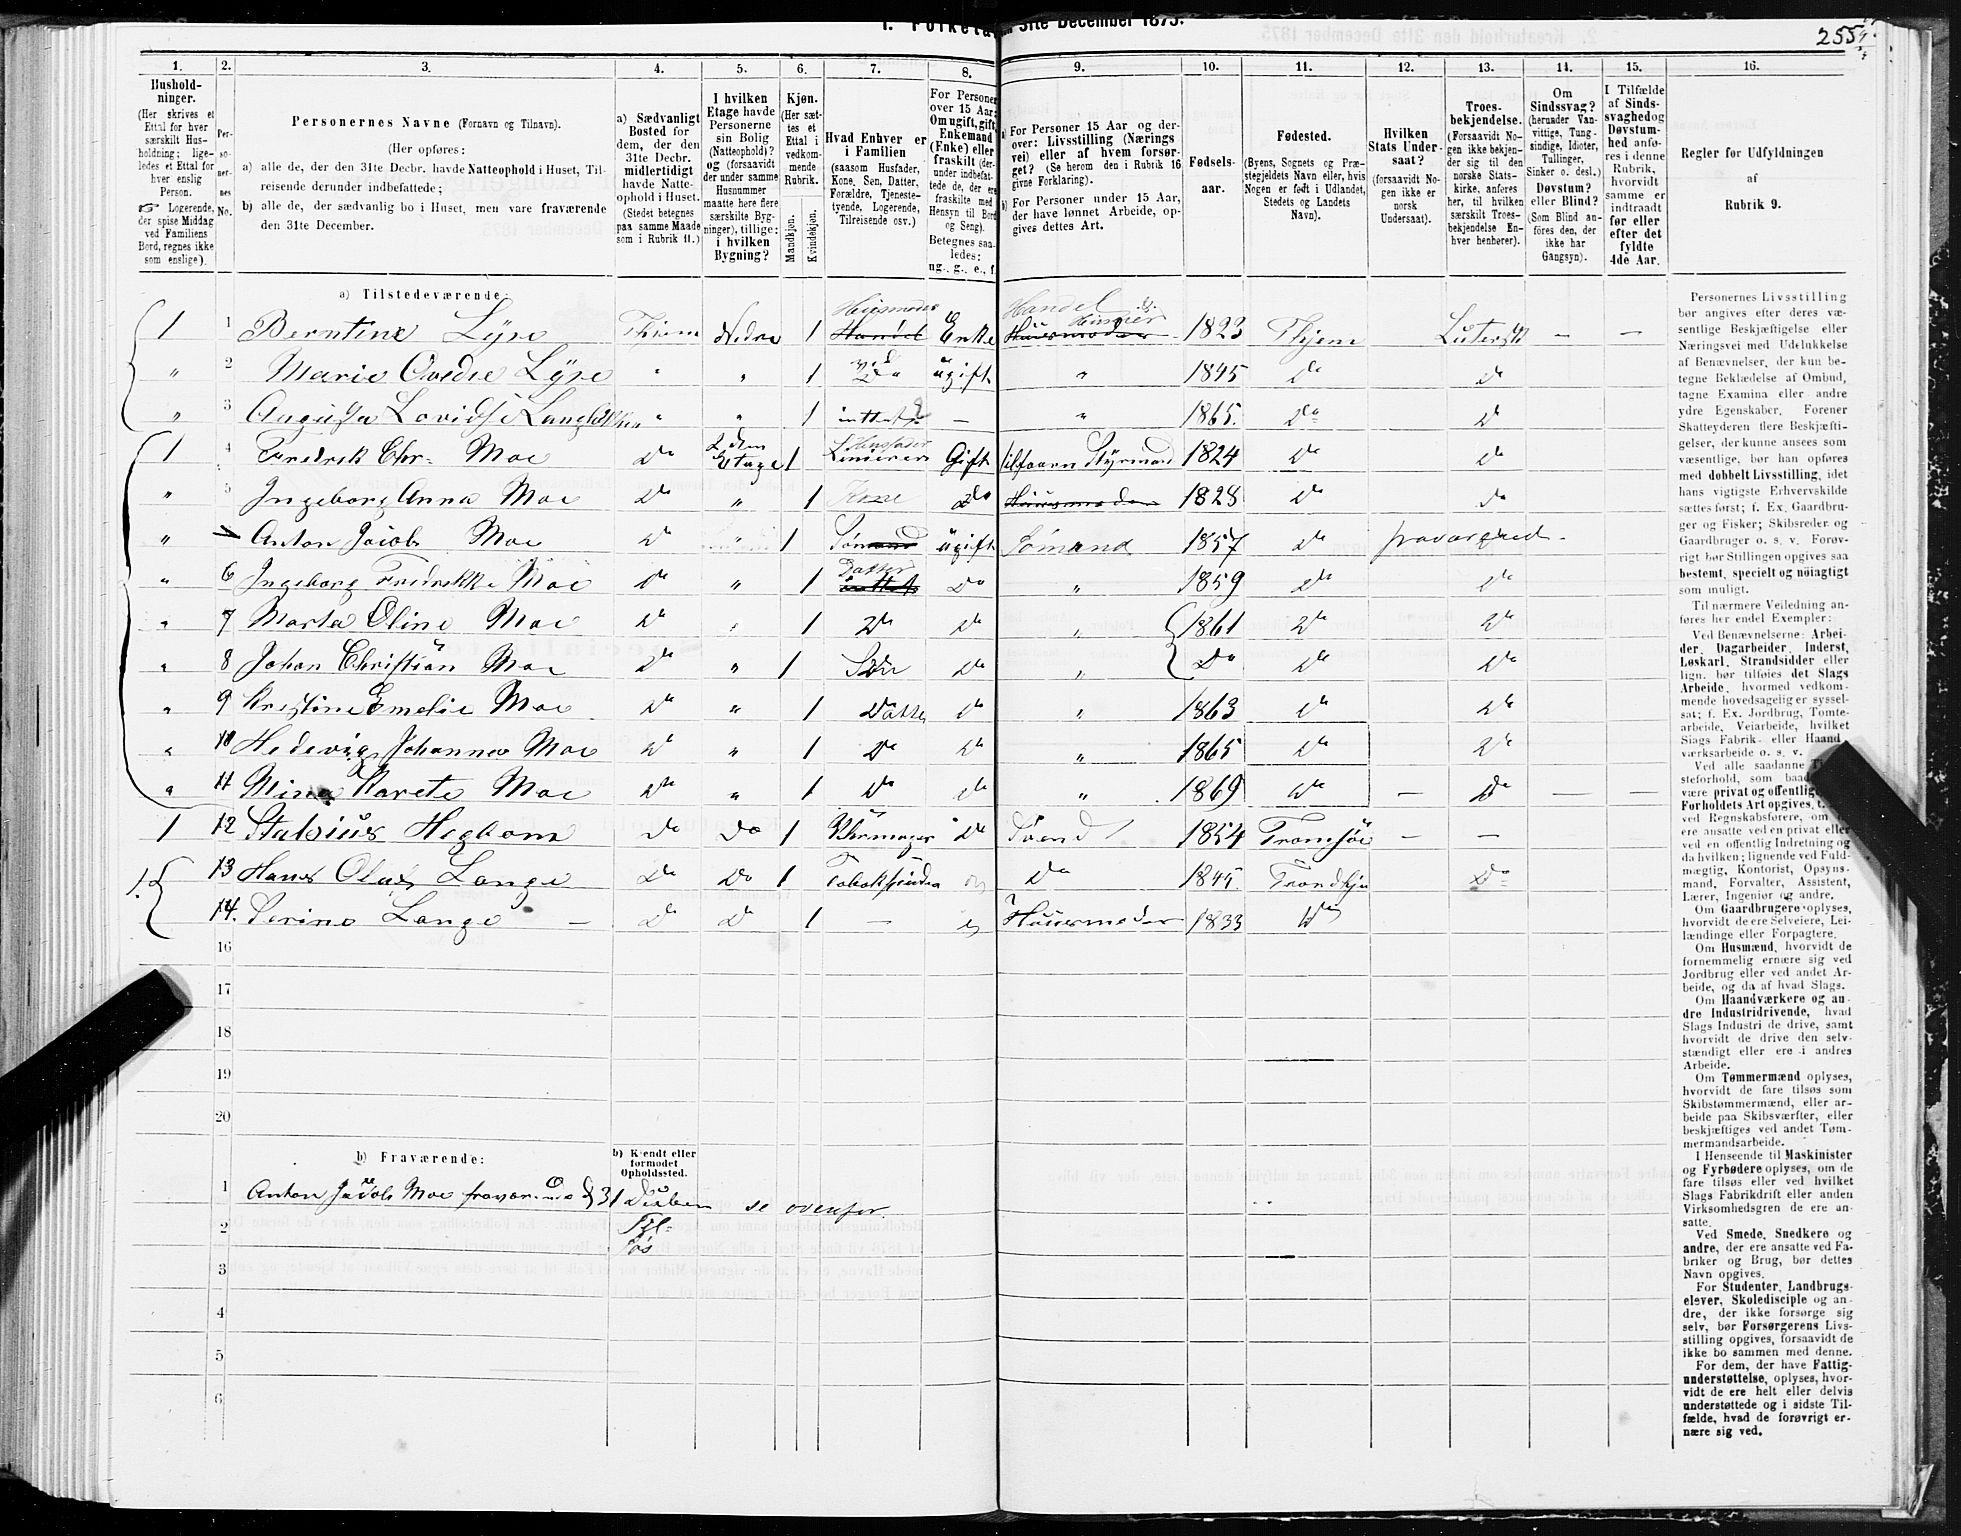 1. Folketa
m 31te December 1875.
255
1. 2. 3. 4. 5. 6. 7. 8. 9. 10. 11. 12. 13. 14. 15. 16.
Hushold-
ninger.
(Her skrives et
Ettal for hver
særskilt Hus-
holdning; lige-
ledes et Ettal for
hver enslig
Person.
☞ Logerende,
der spise Middag
ved Familiens
Bord, regnes ikke
som enslige).
Per-
so-
ner-
nes
No.
Personernes Navne (Fornavn og Tilnavn).
(Her opføres:
a) alle de, der den 31te Decbr. havde Natteophold i Huset, Til-
reisende derunder indbefattede;
b) alle de, der sædvanlig bo i Huset, men vare fraværende
den 31te December.
a) Sædvanligt
Bosted for
dem, der den
31te Decbr.
midlertidigt
havde Natte-
ophold i Huset.
(Stedet betegnes
paa samme Maade
som i Rubrik 11.)
I hvilken
Etage havde
Personerne
sin Bolig
(Natteophold)?
og (forsaavidt
der under samme
Husnummer
maatte høre flere
særskilte Byg-
ninger), tillige:
i hvilken
Bygning?
Kjøn.
(Her sæt-
tes et
Ettal i
vedkom-
mende
Rubrik.
Mandkjøn.
Kvindekjøn.
Hvad Enhver er
i Familien
(saasom Husfader,
Kone, Søn, Datter,
Forældre, Tjeneste-
tyende, Logerende,
Tilreisende osv.)
For Personer
over 15 Aar;
Om ugift, gift,
Enkemand
(Enke) eller
fraskilt (der-
under indbefat-
tede de, der ere
fraskilte med
Hensyn til Bord
og Seng).
Betegnes saa-
ledes:
ug., g., e., f.
a) For Personer 15 Aar og der-
over: Livsstilling (Nærings
vei) eller af hvem forsør-
get? (Se herom den i Rubrik 16
givne Forklaring).
b) For Personer under 15 Aar,
der have lønnet Arbeide, op-
gives dettes Art.
Fødsels-
aar.
Fødested.
(Byens, Sognets og Præ-
stegjeldets Navn eller, hvis
Nogen er født i Udlandet,
Stedets og Landets
Navn).
Hvilken
Stats Under-
saat?
(forsaavidt No-
gen ikke er
norsk
Undersaat).
Troes-
bekjendelse.
(Forsaavidt No-
gen ikke bekjen-
der sig til den
norske Stats-
kirke, anføres
her, til hvilken
særskilt Troes-
bekjendelse En-
hver henhører).
Om
Sindssvag?
(herunder Van-
vittige, Tung-
sindige, Idioter,
Tullinger,
Sinker o. desl.)
Døvstum?
eller Blind?
(Som Blind an-
føres den, der
ikke har
Gangsyn).
I Tilfælde
af Sinds-
svaghed og
Døvstum-
hed anfø-
res i denne
Rubrik,
hvorvidt
samme er
indtraadt
før eller
efter det
fyldte
4de Aar.
Regler for Udfyldningen
af
Rubrik 9.
a) Tilstedeværende:
1 1 Berntine Lyse Thjem Nedre 1 Husmoder Handel Enke Handel Huusmoder 1823 Thjem Lutersk — —
" 2 Marie Ovedie Lyse " " 1 Do ugift " 1845 Do Do
" 3 Augusta Lovidse " " 1 — " 1865. Do Do
1 4 Fredrik Chr. Moe Do Etage 1 Husfader Gift Styrmand 1824 Do Do
" 5 Ingeborg Anna Moe Do " 1 Kone Do Huusmoder 1828 Do Do
" Anton Jacob Moe Do " 1 Sømand ugift Sømand 1857 Do fraværend
" 6 Ingeborg Fredrikke Moe Do " 1 Datter Do " 1859 Do Do
" 7 Marta Oline Moe Do " 1 Do Do " 1861 Do Do
" 8 Johan Christian Moe Do " 1 Søn Do " Do Do Do
" 9 Kristine Emelie Moe Do " 1 Datter Do " 1863 Do Do
" 10 Hedevig Johanna Moe Do " 1 Do Do " 1865 Do Do
" 11 Mina Karete Moe Do " 1 Do Do " 1869 Do — Do — —
1 12 Do Do 1 Do 1854 Tromsøe — —
1. 13 Hans Olaf Lange Do Do 1 Do 1845. Trondhj Do
14. Serine Lange — Do D 1 — Huusmoder 1833 Do
16
17
18
19
20
b) Fraværende:
b) Kjendt eller
formodet
Opholdssted.
1 Anton Jacob Moe se ovenfor
2
3
4
5
6
Personernes Livsstilling
bør angives efter deres væ-
sentlige Beskjæftigelse eller
Næringsvei med Udelukkelse
af Benævnelser, der kun be-
tegne Beklædelse af Ombud,
tagne Examina eller andre
ydre Egenskaber. Forener
Skatteyderen flere Beskjæfti-
gelser, der kunne ansees som
væsentlige, bør han opføres
med dobbelt Livsstilling, idet
hans vigtigste Erhvervskilde
sættes først; f. Ex. Gaardbru-
ger og Fisker; Skibsreder og
Gaardbruger o. s. v. Forøv-
rigt bør Stillingen opgives saa
bestemt, specielt og nøiagtigt
som muligt.
Til nærmere Veiledning an-
føres her endel Exempler:
Ved Benævnelserne: Arbei-
der, Dagarbeider, Inderst,
Løskarl, Strandsidder eller
lign. bør tilføies det Slags
Arbeide, hvormed vedkom-
mende hovedsagelig er syssel-
sat; f. Ex. Jordbrug, Tomte-
arbeide, Veiarbeide, hvilket
Slags Fabrik- eller Haand
værksarbeide o. s. v.
Ved alle saadanne
steforhold, som baad
være privat og offentlig
Forholdets Art opgives, t.
ved Regnskabsførere, om
ere ansatte ved en privat eller
ved en offentlig Indretning og
da hvilken; lignende ved Fuld-
mægtig, Kontorist, Opsyns-
mand, Forvalter, Assistent,
Lærer, Ingeniør og andre.
Om Gaardbrugere oplyses,
hvorvidt de ere Selveiere, Lei-
lændinge eller Forpagtere.
Om Husmænd, hvorvidt de
fornemmelig ernære sig ved
Jordbrug eller ved andet Ar-
beide, og da af hvad Slags.
Om Haandværkere og an-
dre Industridrivende, hvad
Slags Industri de drive, samt
hvorvidt de drive den selv-
stændigt eller ere i andres
Arbeide.
Om Tømmermænd oplyses,
hvorvidt de fare tilsøs som
Skibstømmermænd, eller ar-
beide paa Skibsværfter, eller
beskjæftiges ved andet Tøm-
mermandsarbeide.
I Henseende til Maskinister
og Fyrbødere oplyses, om de
fare tilsøs eller ved hvilket
Slags Fabrikdrift eller anden
Virksomhedsgren de ere an-
satte.
Ved Smede, Snedkere og
andre, der ere ansatte ved Fa-
briker og Brug, bør dettes
Navn opgives.
For Studenter, Landbrugs-
elever, Skoledisciple og an-
dre, der ikke forsørge sig
selv, bør Forsørgerens Livs-
stilling opgives, forsaavidt de
ikke bo sammen med denne.
For dem, der have Fattig-
understøttelse, oplyses, hvor-
vidt de ere helt eller delvis
understøttede og i sidste Til-
fælde, hvad de forøvrigt er-
nære sig ved.